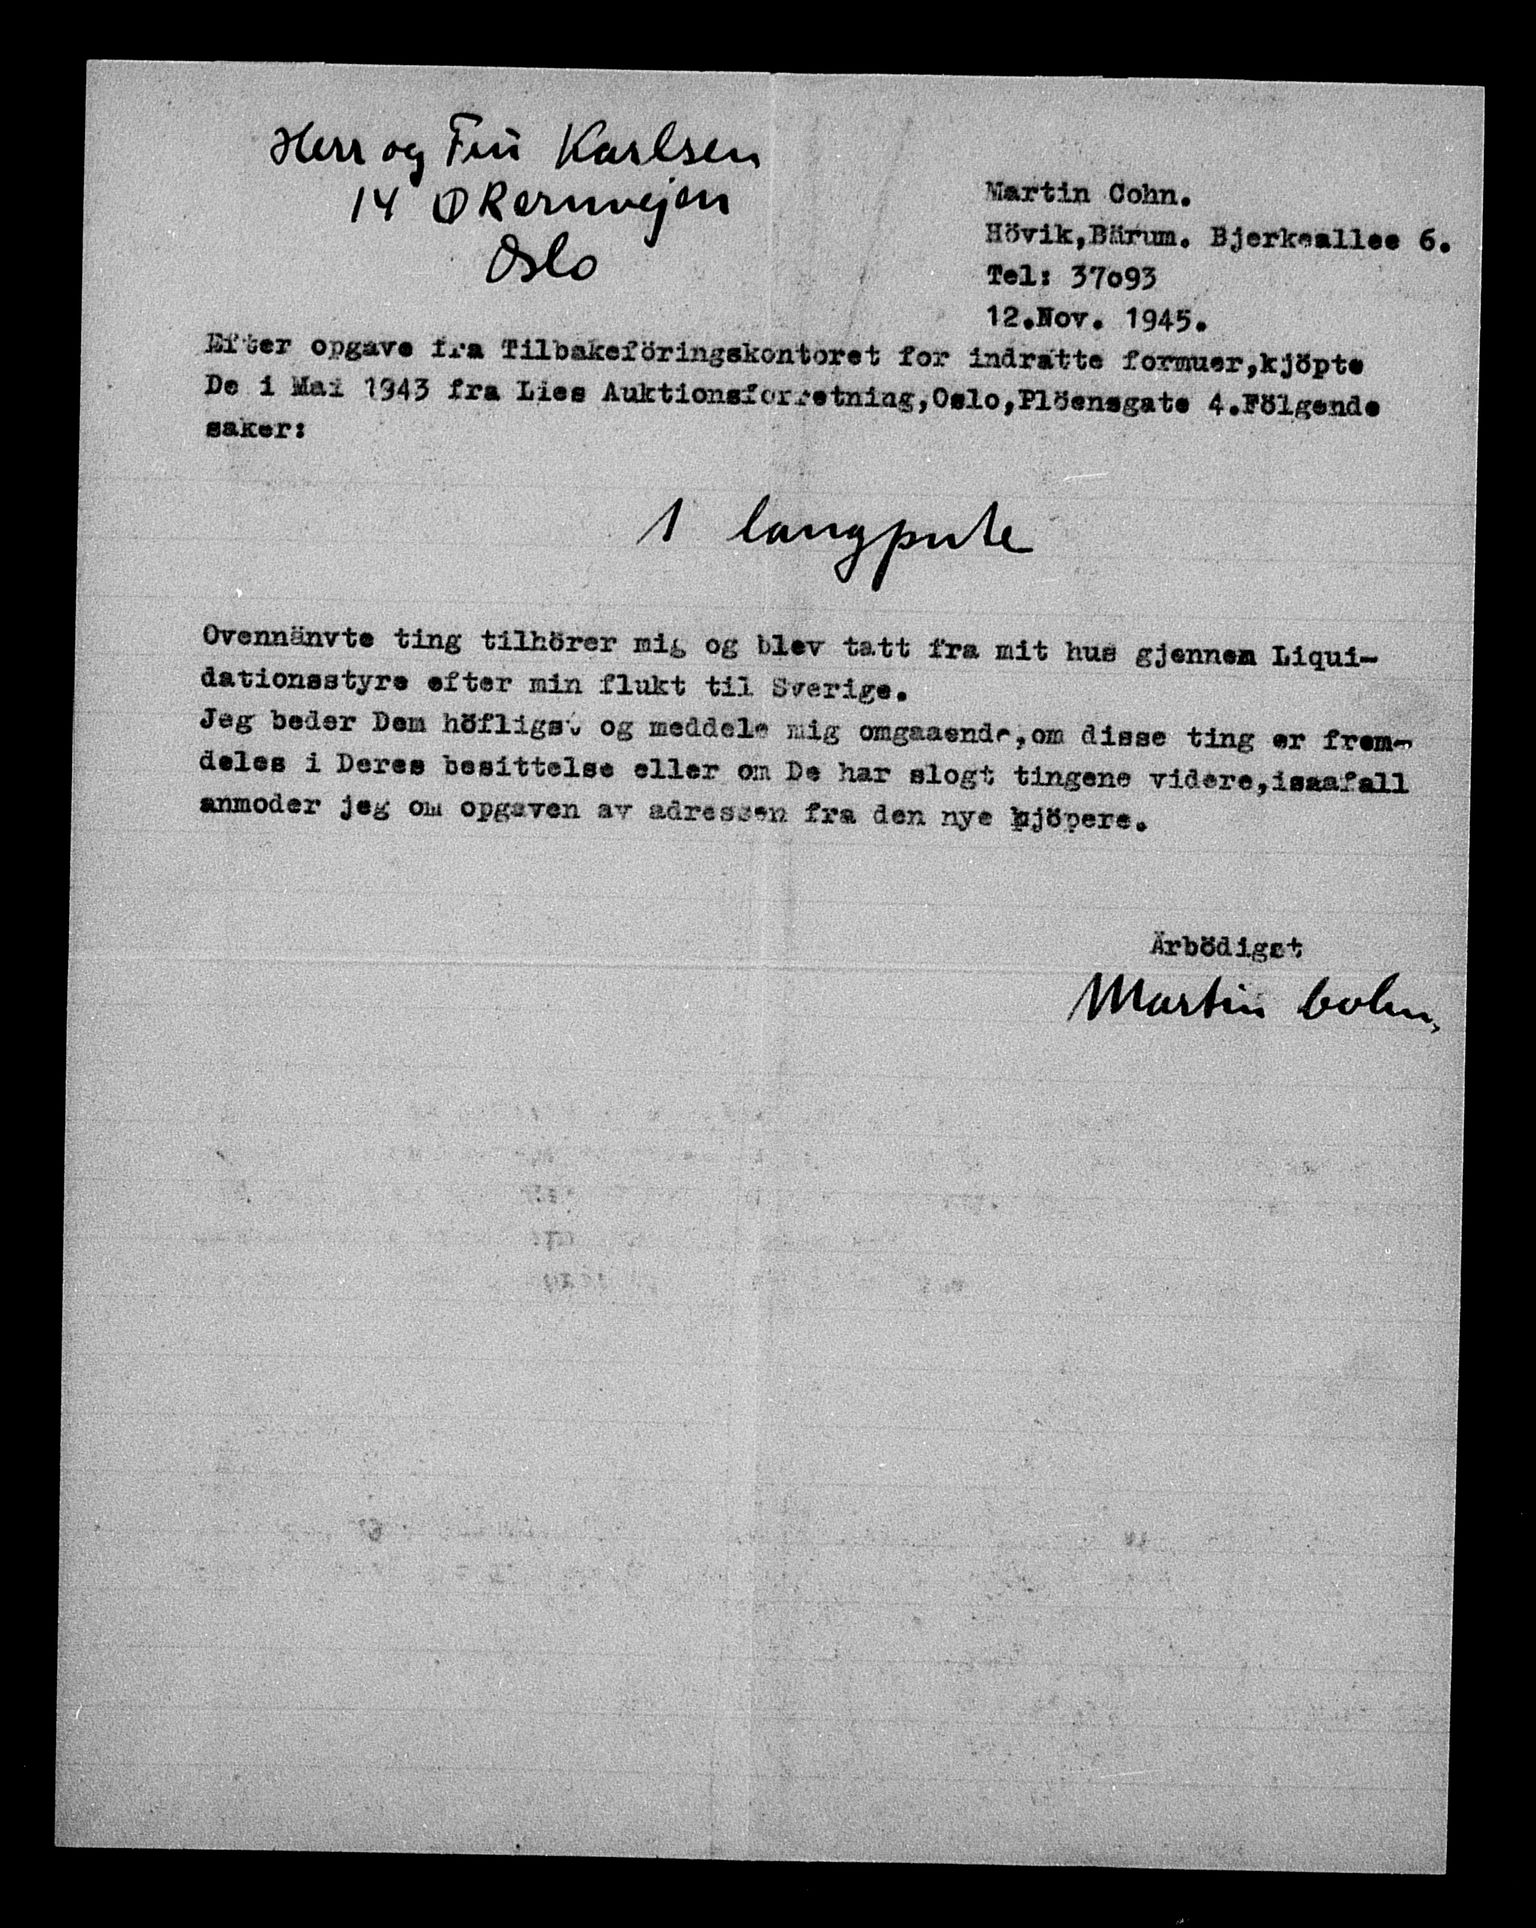 Herr og Fru Karlsen
14 Økernvejen
Oslo
Martin Cohn.
Hövik,Bärum. Bjerkeallee 6.
Tel: 37o93
12.Nov. 1945.
Efter opgave fra Tilbakeföringskontoret for indratte formuer,kjöpte
De i Mai 1943 fra Lies Auktionsforretning,Oslo,Plöensgate 4.Fölgende
saker:
1 langpute
Ovennänvte ting tilhörer mig og blev tatt fra mit hus gjennem Liqui-
dationsstyre efter min flukt til Sverige.
Jeg beder Dem höfligst og meddele mig omgaaende,om disse ting er frem-
deles i Deres besittelse eller om De har slogt tingene videre,isaafall
anmoder jeg om opgaven av adressen fra den nye kjöpere.
Ärbödigst
Martin Cohn.